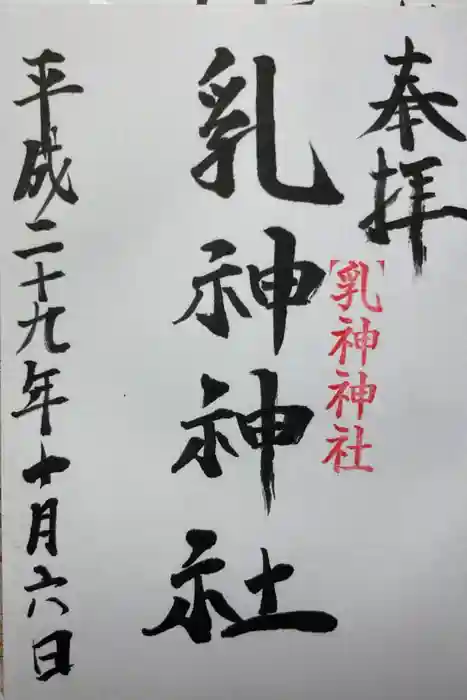 奉拝
乳神神社
乳神神社
平成二十九年十月六日